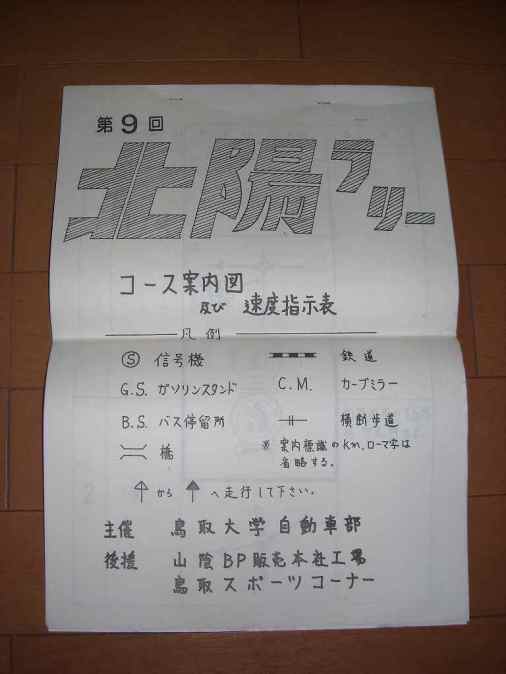 第9回
北陽ラリー
コース案内図
及び 速度指示表
凡例
Ⓢ 信号機
鉄道
G.S. ガソリンスタンド
C.M. カーブミラー
B.S. バス停留所
横断歩道
橋
※ 案内標識のKm、ローマ字は
省略する。
から へ走行して下さい。
主催 鳥取大学自動車部
後援 山陰BP販売本社工場
鳥取スポーツコーナー